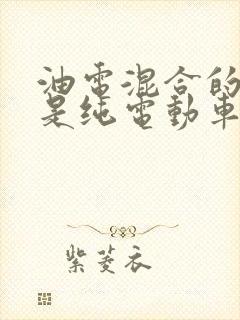 油電混合的
是純電動車
紫菱衣